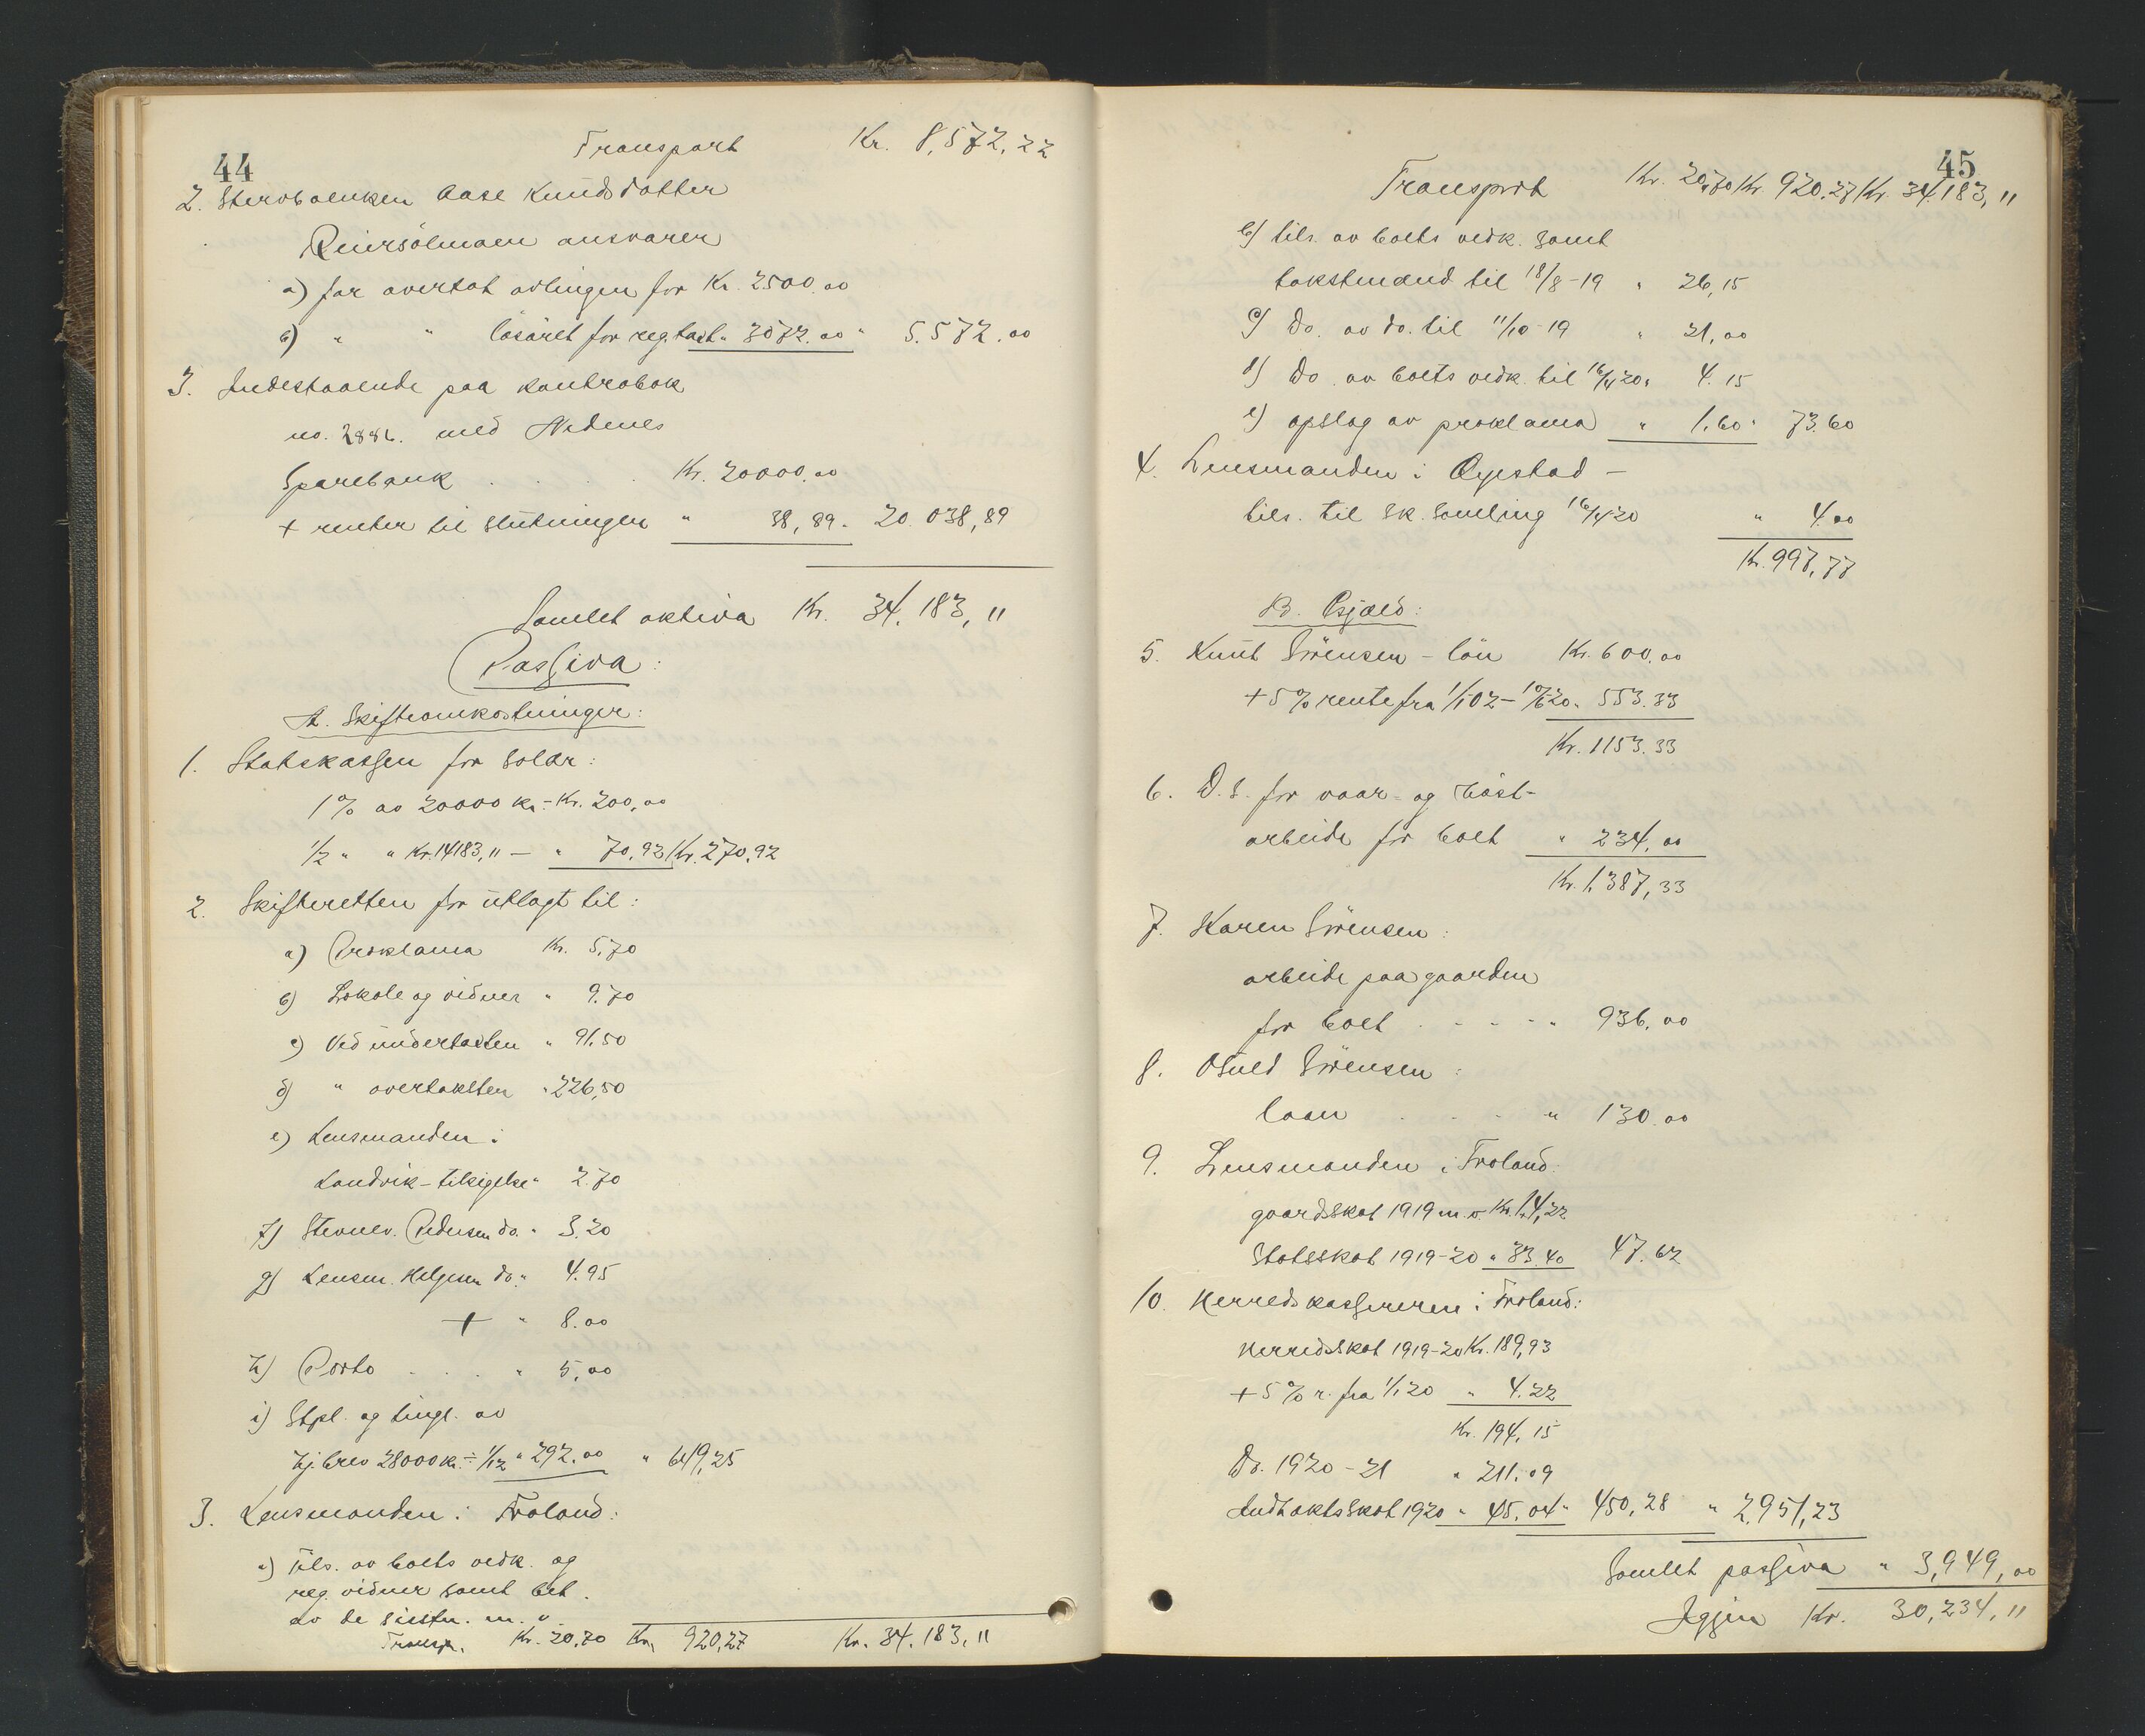 44
Transport Kr. 8,572,22
2. Stervboenken Aase Knudsdatter
Reiersölmoen ansvarer
a) for overtat avlingen for Kr. 2500.00
b) " " lösöret for reg.takst " 3072.00 " 5.572.00
3. Indestaaende paa kontrabok
no. 2886. med Nedenes
Sparebank . . . . Kr. 20000.00
+ renter til slutningen " 38,89 " 20 038,89
Samlet aktiva Kr. 34.183,"
Passiva:
A. Skifteomkostninger:
1. Statskassen for solær:
1% av 20000 kr - Kr. 200,00
1/2 " " Kr. 14183," — " 70,92 Kr. 270,92
2. Skifteretten for utlagt til:
a) Proklama Kr. 5,70
b) Lokale og vidner " 9.70
c) Ved undertaksten " 91.50
d) " overtaksten " 226,50
e) Lensmanden i
Landvik - tilsigelse " 2.70
f) Stevnev. Pedersen do. " 3.20
g) Lensm. Helgesen do. " 4.95
+ " 8.00
h) Porto . . . . " 5,00
i) Stpl. og tingl. av
hj.brev 28000 kr. ÷ 1/12 " 292.00 " 649,25
3. Lensmanden i Froland:
a) Tils. av boets vedk. og
reg. vidner samt bet.
av de sisstn. m. v.
Transp. Kr. 20,70 Kr. 920,27 Kr. 34.183,"
45
Transport Kr. 20,70 Kr. 920.27 Kr. 34.183,"
b) tils. av boets vedk. samt
takstmænd til 18/8-19 " 26,15
c) Do. av do. til 11/10-19 " 21,00
d) Do. av boets vedk. til 16/4 20 " 4.15
e) opslag av proklama " 1.60 " 73.60
4. Lensmanden i Øyestad —
tils. til sk.samling 16/4 20 " 4.00
Kr. 997,77
B. Gjæld:
5. Knut Sörensen - lön Kr. 600.00
+ 5% rente fra 1/1 02 - 10/6 20 " 553.33
Kr. 1153.33
6. D.s. for vaar- og höst-
arbeide for boet " 234,00
Kr. 1.387,33
7. Karen Sörensen:
arbeide paa gaarden
for boet . - - - " 936.00
8. Osuld Sörensen:
laan . . . " 130.00
9. Lensmanden i Froland:
gaardsskat 1919 m.v. Kr. 14,22
Statsskat 1919-20 " 33.40 47.62
10. Herredskassereren i Froland:
Herredsskat 1919-20 Kr. 189,93
+ 5% r. fra 1/1 20 " 4.22
Kr. 194,15
Do. 1920-21 " 211.09
Indtaktsskat 1920 " 45,04 " 450,28 " 2,951,23
Samlet passiva " 3,949,00
Igjen Kr. 30,234,"